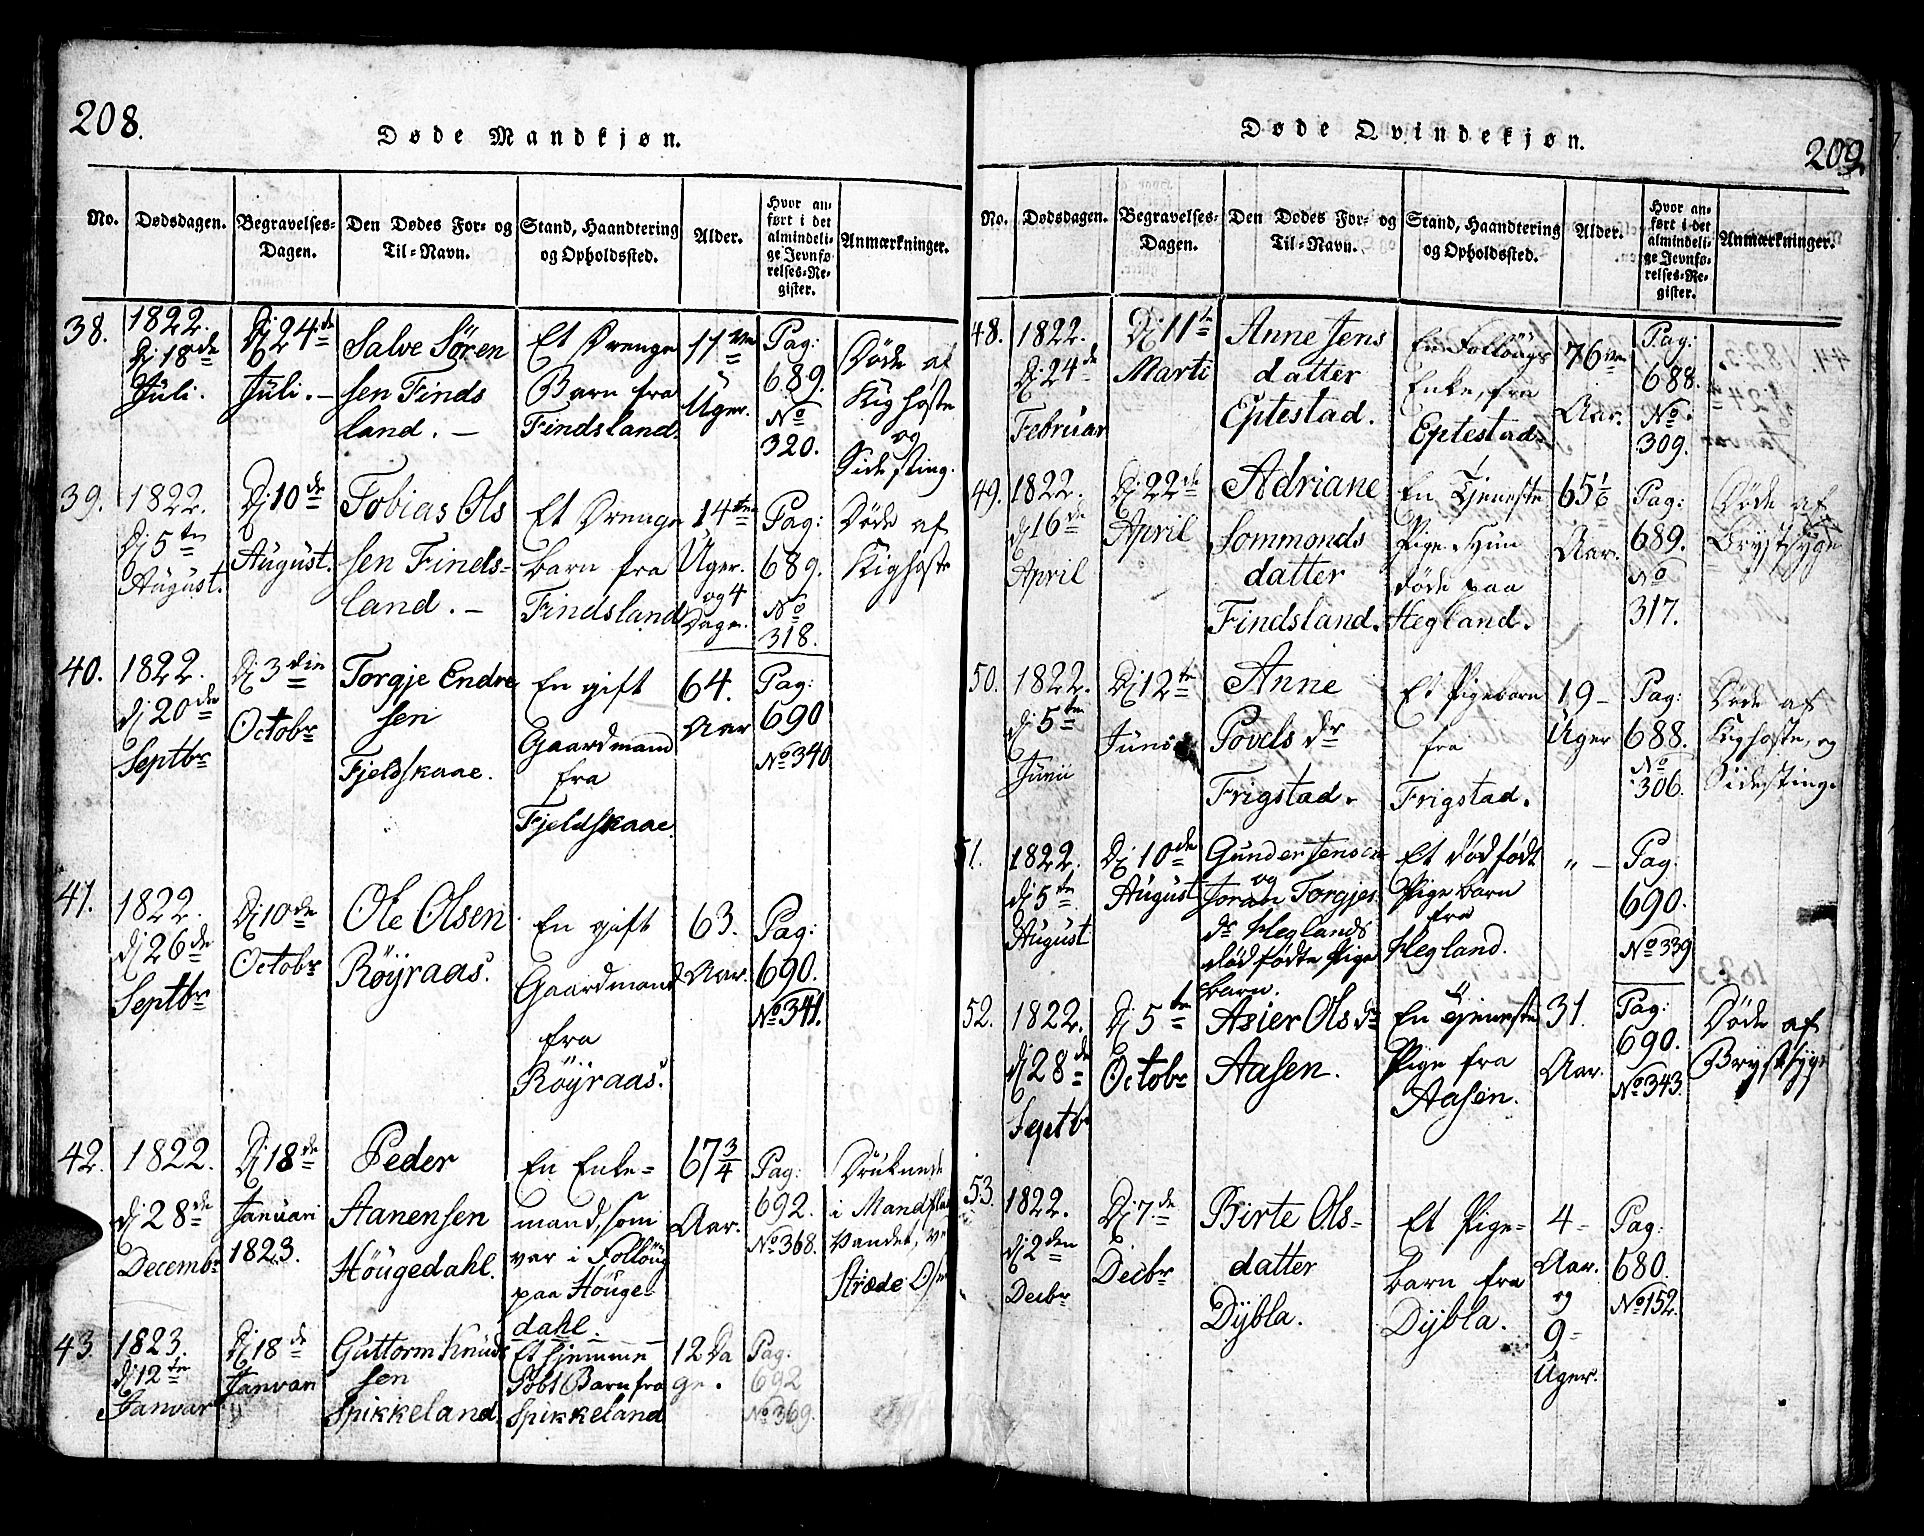 208.
Døde Mandkjøn.
No. Dødsdagen. Begravelses-Dagen. Den Dødes For- og Til-Navn. Stand, Haandtering og Opholdssted. Alder. Hvor anført i det almindelige Jevnførelses-Register. Anmærkninger.
38.
1822.
Dj 18de
Juli.
Dj 24de
Juli. –
Salve Søren
sen Finds
land. –
Et Drenge
Barn fra
Findsland.
17ten
Uger.
Pag:
689.
No
320.
Døde af
Kighoste
og
Sidesting.
39.
1822.
Dj 5te
August.
Dj 10de
August.
Tobias Ols
sen Finds-
land. –
Et Drenge
barn fra
Findsland
14ten
Uger.
og 4
Dage.
Pag:
689.
No
318.
Døde af
Kighoste
40.
1822.
dj 20de
Septbr
Dj 3die
Octobr
Torgje Endre
sen
Fjeldskaae.
En gift
Gaardmand
fra
Fjeldskaae.
64.
Aar
Pag:
690
No 340
41.
1822.
dj 26de
Septbr
Dj 10de
Octobr
Ole Olsen
Röÿraas.
En gift
Gaardmand
fra
Röÿraas.
63.
Aar.
Pag:
690.
No 341.
42.
1822.
dj 28de
Decembr
Dj 18de
Januari
1823.
Peder
Aanensen
Höugedahl.
En Enke-
mand, som
var i Follöug
paa Höuge-
dahl.
67 3/4
Aar.
Pag:
692.
No 368.
Druknede
i
Vandet,
43.
1823.
dj 12te
Januar
Dj 18de
Januari
Guttorm Knuds
sen
Spikkeland
Et hjemme
Döbt Barn fra
Spikkeland
12 Da
ge.
Pag.
692
No 369.
209
Døde Qvindekjøn.
No. Dødsdagen. Begravelses-Dagen. Den Dødes For- og Til-Navn. Stand, Haandtering og Opholdssted. Alder. Hvor anført i det almindelige Jevnførelses-Register. Anmærkninger.
48.
1822.
Dj 24de
Februar
Dj 11te
Marti
Anne Jens
datter
Eptestad.
En Follöugs
Enke, fra
Eptestad.
76
Aar.
Pag:
688.
No
309.
49.
1822.
dj 16de
April
Dj 22de
April
Adriane
Sommonds
datter
Findsland.
En Tjeneste
Pige. Hun
døde paa
Hegland.
65 1/6
Aar.
Pag:
689.
No
317.
Døde af
Brystsyge
50.
1822.
dj 5te
Junii
Dj 12te
Juni
Anne
Povels dr
Frigstad.
Et Pigebarn
fra
Frigstad.
19 –
Uger
Pag:
688.
No
306.
Døde af
Kighoste, og
Sidesting.
51.
1822.
dj 5te
August
Dj 10de
August
Gunder Jensen
og
Joran Torgjes
dr Heglands
dødfødte Pige
barn.
Et dødfødt
Pigebarn
fra
Hegland.
" –
Pag.
690.
No 339
52.
1822.
dj 28de
Septbr
Dj 5te
Octobr
Asier Ols dr
Aasen.
En Tjeneste
Pige fra
Aasen.
31.
Aar.
Pag:
690.
No 343.
Døde af
Brystsyge
53.
1822.
dj 2den
Decbr
Dj 7de
Decbr
Birte Ols-
datter
Dÿbla.
Et Pige-
barn fra
Dÿbla.
4 –
Aar.
og
9 –
Uger.
Pag:
680.
No 152.